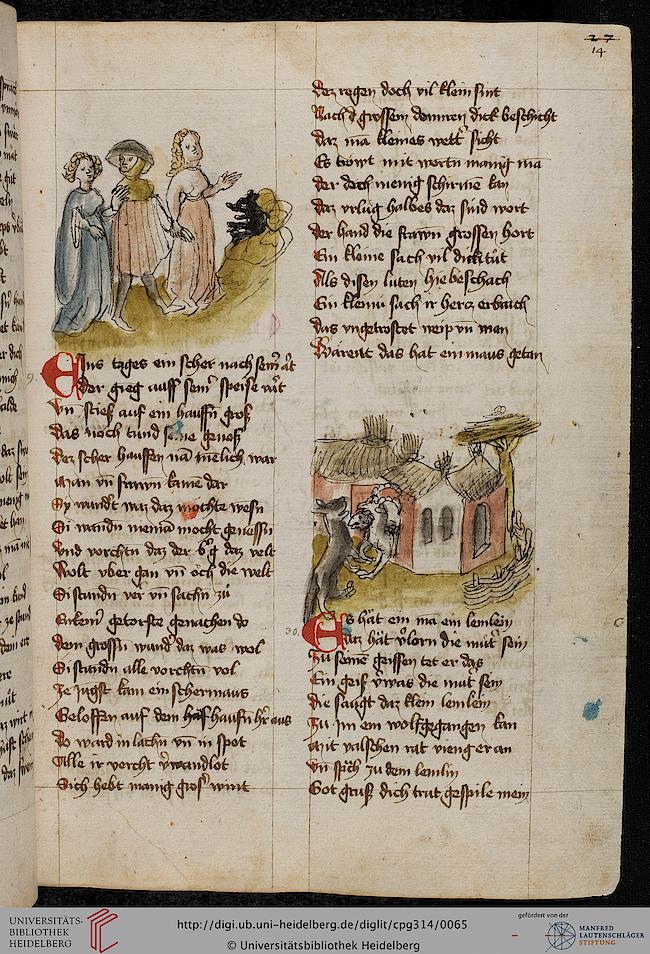 27
14
Eins tages ein scher nach sem̄ ar̄t
der gieg auff sem̄ speise vart
Vn̄ stiess auf ein hauffn̄ groß
Das noch kund genoß
Der scher hauffen nā mēlich war
Man vn̄ frawn̄ kame dar
Sy wandt waz daz mochte wesn̄
Si wandn̄ niemā mocht genessn̄
Vnd vorchtn̄ daz der daz velt
Wolt vber gan vn̄ och die welt
Si stundn̄ ver vn̄ sachn̄ zů
getorste genachen do
dem grossn̄ daz was wol
Si stundn̄ alle vorchtn̄ vol
Ze jugst kam ein schermaus
Geloffen auf dem haufn̄ aus
Do ward in lachn̄ vn̄ in spot
Alle ir vorcht v̓wandlot
Sich hebt manig wint
Der regen doch vil klein sint
Nach grossem donnren dick beschicht
daz mā kleines wett̓ sicht
Es trowt mit wortn̄ manig mā
der doch wenig schirmē kan
daz vrlug halbes daz sind wort
der hand die frawn̄ grossen hort
Ein kleine sach vil dick tůt
Als disen luten hie beschach
Ein kleinu sach ir hercz erbrach
das vngetrostet weip vn̄ man
das hat ein maus getan
30
Es hăt ein mā ein lemlein
daz hăt v̓lorn die mut̓ sein
Zu seine geissen tet er das
Ein geiß die mut̓ sein
die saugt daz klein lemlein
Zu im ein wolf gegangen kan
mit valschen rat vieng er an
Vn̄ sprch zu dem lemlin
Got grůß dich trut gespile mein
UNIVERSITÄTS-
BIBLIOTHEK
HEIDELBERG
http://digi.ub.uni-heidelberg.de/diglit/cpg314/0065
© Universitätsbibliothek Heidelberg
gefördert von der
MANFRED
LAUTENSCHLÄGER
STIFTUNG